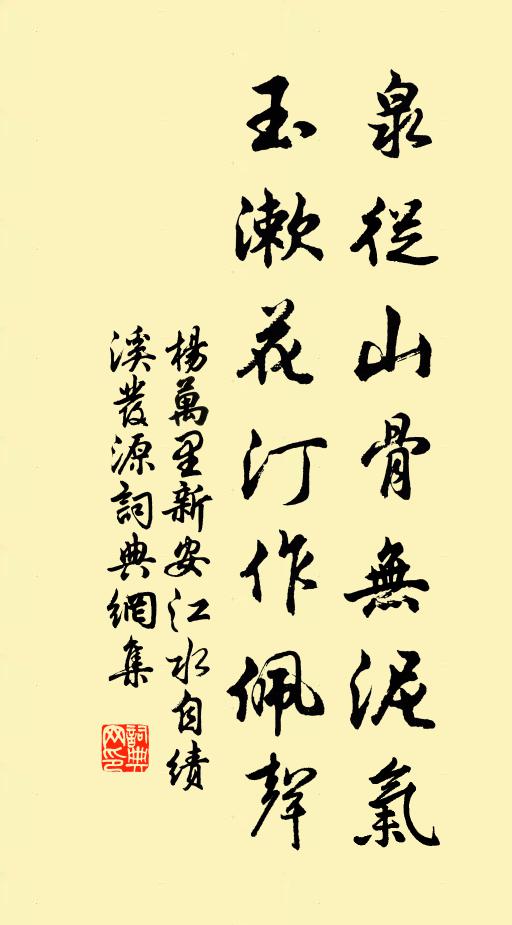 泉從山骨無泥氣
玉漱花汀作佩聲
楊萬里新安江水自績
溪發源詞典網集
詞典
网印